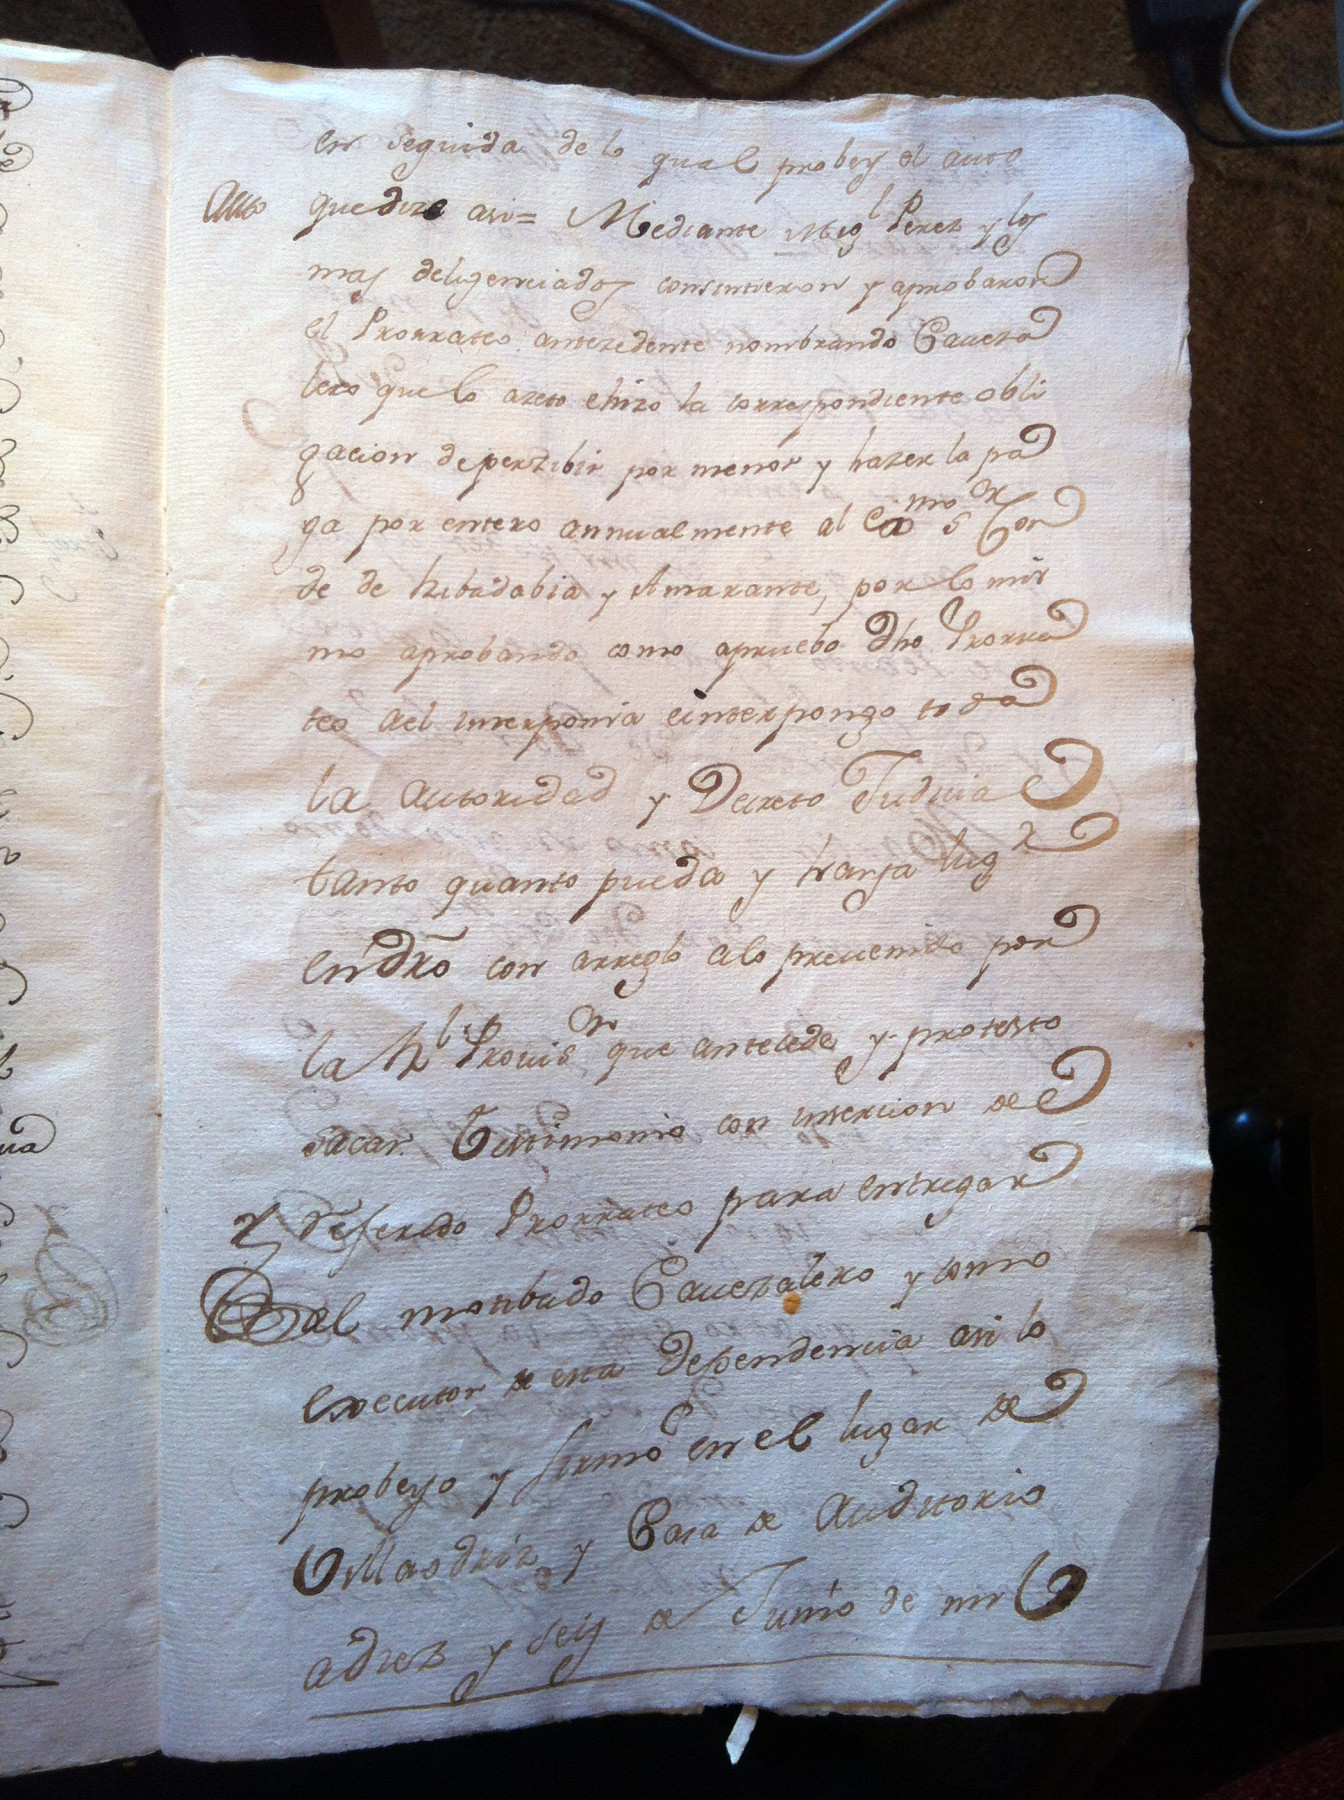 en seguida de lo qual probey el auto
Auto que dize asi= Mediante Migl Perez y los
mas deligenciados consintieron y aprobaron
el Prorrateo antezedente nombrando Caueza
lero que lo azeto e hizo la correspondiente obli
gacion de perzibir por menor y hazer la pa
ga por entero annualmente al Exmo Sor Con
de de Ribadabia y Amarante, por lo mis
mo aprobando como apruebo dho Prorra
teo a el interponia e interpongo toda
la autoridad y Decreto Judicial
tanto quanto pueda y haya lugr
en dro con arreglo a lo preuenido por
la Rl Prouison que antecede y protesto
sacar Testimonio con insercion del
referido Prorrateo para entregar
al motibado Cauezalero y como
executor de esta dependencia asi lo
probeyo y firmo en el lugar de
Villasdriz y Casa de Auditorio
a diez y seis de Junio de mil